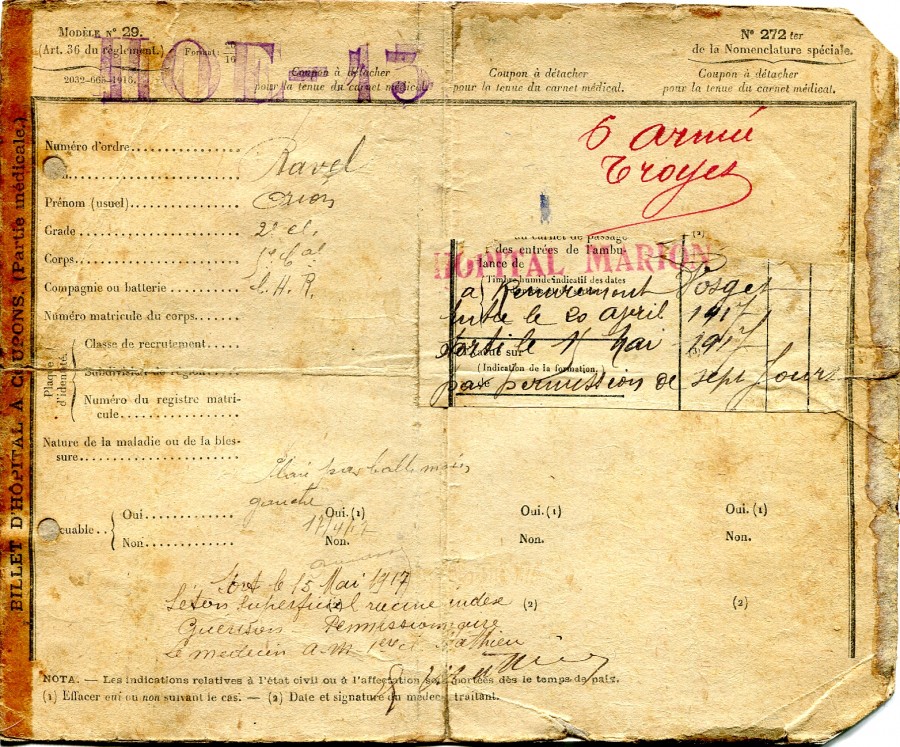 MODÈLE N° 29.
(Art. 36 du règlement.) Format: 20/16
2032-665-1916.
HOE-13
N° 272 ter
de la Nomenclature spéciale.
Coupon à détacher
pour la tenue du carnet médical.
Coupon à détacher
pour la tenue du carnet médical.
Coupon à détacher
pour la tenue du carnet médical.
BILLET D'HÔPITAL A COUPONS. (Partie médicale.)
6 Armée
Troyes
Numéro d'ordre
Ravel
Prénom (usuel)
Grade 2e cl.
Corps
Compagnie ou batterie C.H.R.
Numéro matricule du corps
Plaque d'identité.
Classe de recrutement
Subdivision de région
Numéro du registre matri-
cule
au carnet de passage (2)
des entrées de l'ambu-
lance de
HOPITAL MARION
Timbre humide indicatif des dates
a Remiremont Vosges
Entré le 20 april 1917
Sorti le 15 Mai 1917
Évacué sur (3)
(Indication de la formation)
par permission de sept Jours
Nature de la maladie ou de la bles-
sure
Plaie par balle main
gauche
17/4/17
cuable
Oui Oui. (1) Oui. (1) Oui. (1)
Non Non. Non. Non.
Sort le 15 Mai 1917
Séton superficiel racine index
(2) (2) (2)
Guérison Permissionnaire
Le medecin a.m. Mathieu
NOTA. — Les indications relatives à l'état civil ou à l'affectation sont portées dès le temps de paix.
(1) Effacer oui ou non suivant le cas. — (2) Date et signature du médecin traitant.